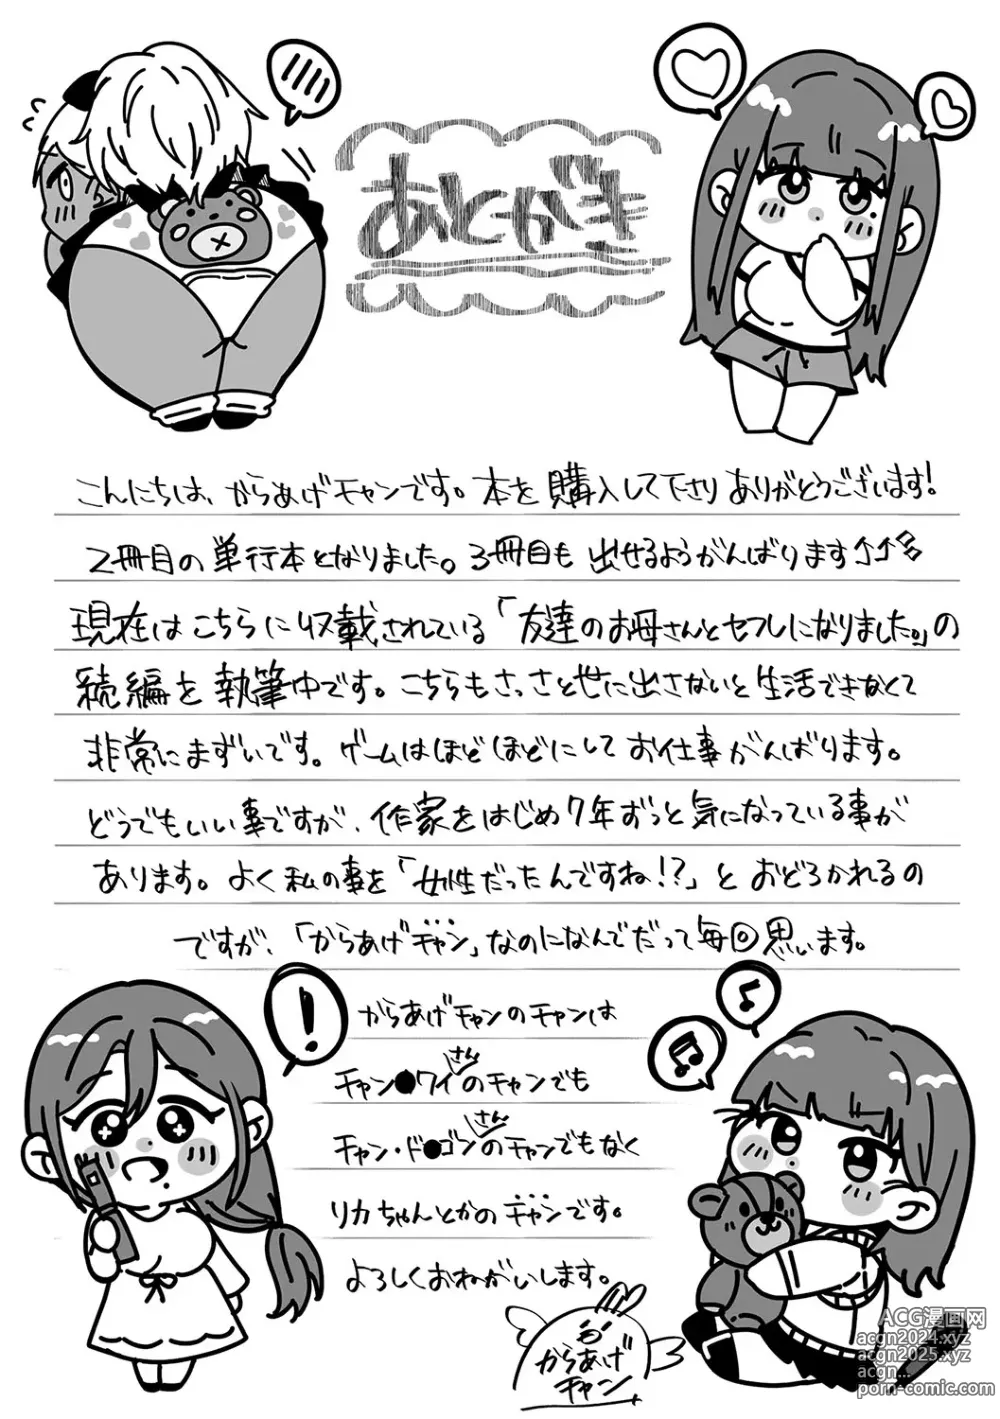 あとがき
こんにちは、からあげチャンです。本を購入して下さりありがとうございます!
2冊目の単行本となりました。3冊目も出せるようがんばります
現在はこちらに収載されている「友達のお母さんとセフレになりました。」の
続編を執筆中です。こちらもさっさと世に出さないと生活できなくて
非常にまずいです。ゲームはほどほどにしてお仕事がんばります。
どうでもいい事ですが、作家をはじめ7年ずっと気になっている事が
あります。よく私の事を「女性だったんですね!?」とおどろかれるの
ですが、「からあげチャン」なのになんでだって毎回思います。
からあげチャンのチャンは
チャン●ワイさんのチャンでも
チャン・ド●ゴンさんのチャンでもなく
リカちゃんとかのチャンです。
よろしくおねがいします。
からあげ
チャン
ACG漫画网
acgn2024.xyz
acgn2025.xyz
acgn...
porn-comic.com